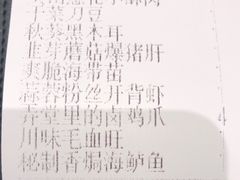 干菜刀豆
秋葵黑木耳
韭芽蘑菇爆猪肝
爽脆海带苗
蒜蓉粉丝开背虾
弄堂里的卤鸡爪
川味毛血旺
秘制香焗海鲈鱼